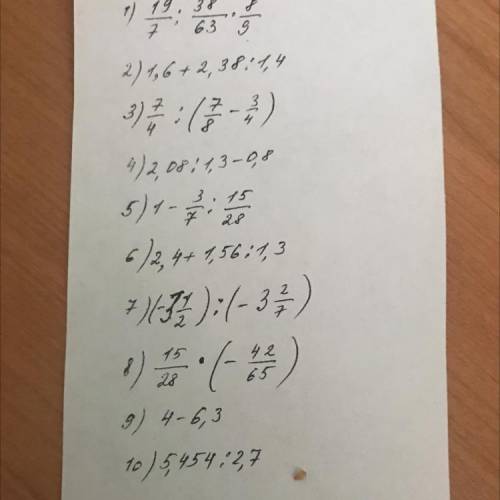 1) 19/7 : 38/63 · 8/9
2) 1,6 + 2,38 : 1,4
3) 7/4 : (7/8 - 3/4)
4) 2,08 : 1,3 - 0,8
5) 1 - 3/7 : 15/28
6) 2,4 + 1,56 : 1,3
7) (-3 1/2) : (-3 2/7)
8) 15/28 · (- 42/65)
9) 4 - 6,3
10) 5,454 : 2,7